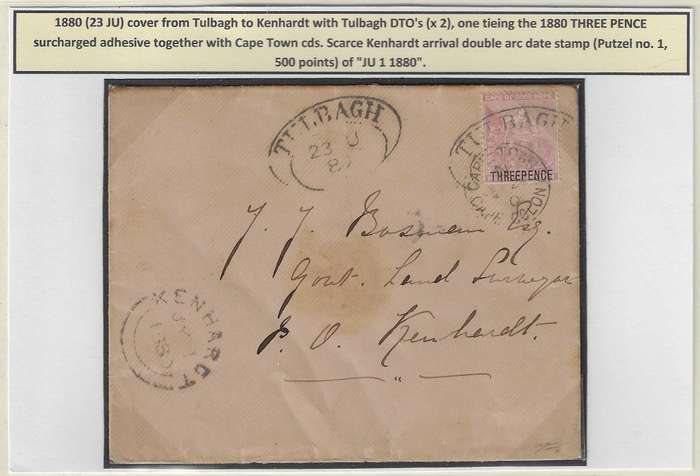 1880 (23 JU) cover from Tulbagh to Kenhardt with Tulbagh DTO's (x 2), one tieing the 1880 THREE PENCE
surcharged adhesive together with Cape Town cds. Scarce Kenhardt arrival double arc date stamp (Putzel no. 1,
500 points) of "JU 1 1880".
TULBAGH
23 JU
80
TULBAGH
CAPE TOWN
THREEPENCE
J. J. Bosman Esq.
Govt. Land Surveyor
P. O. Kenhardt.
KENHARDT